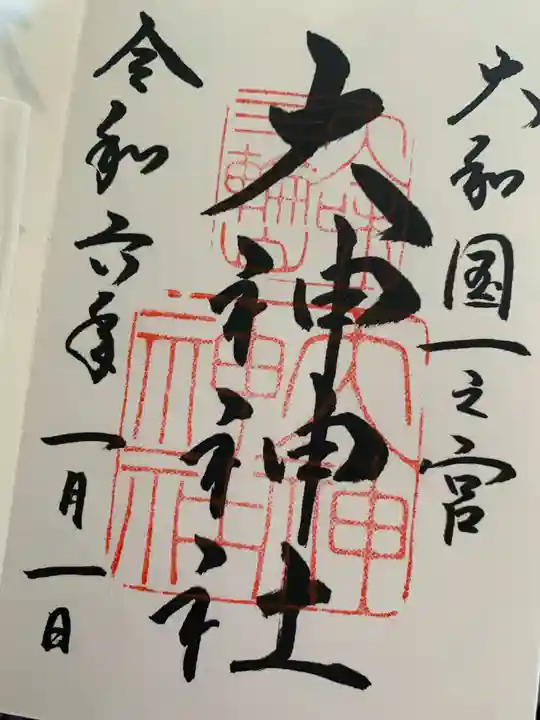 大和国一之宮
大神神社
令和六年一月一日
大神神社